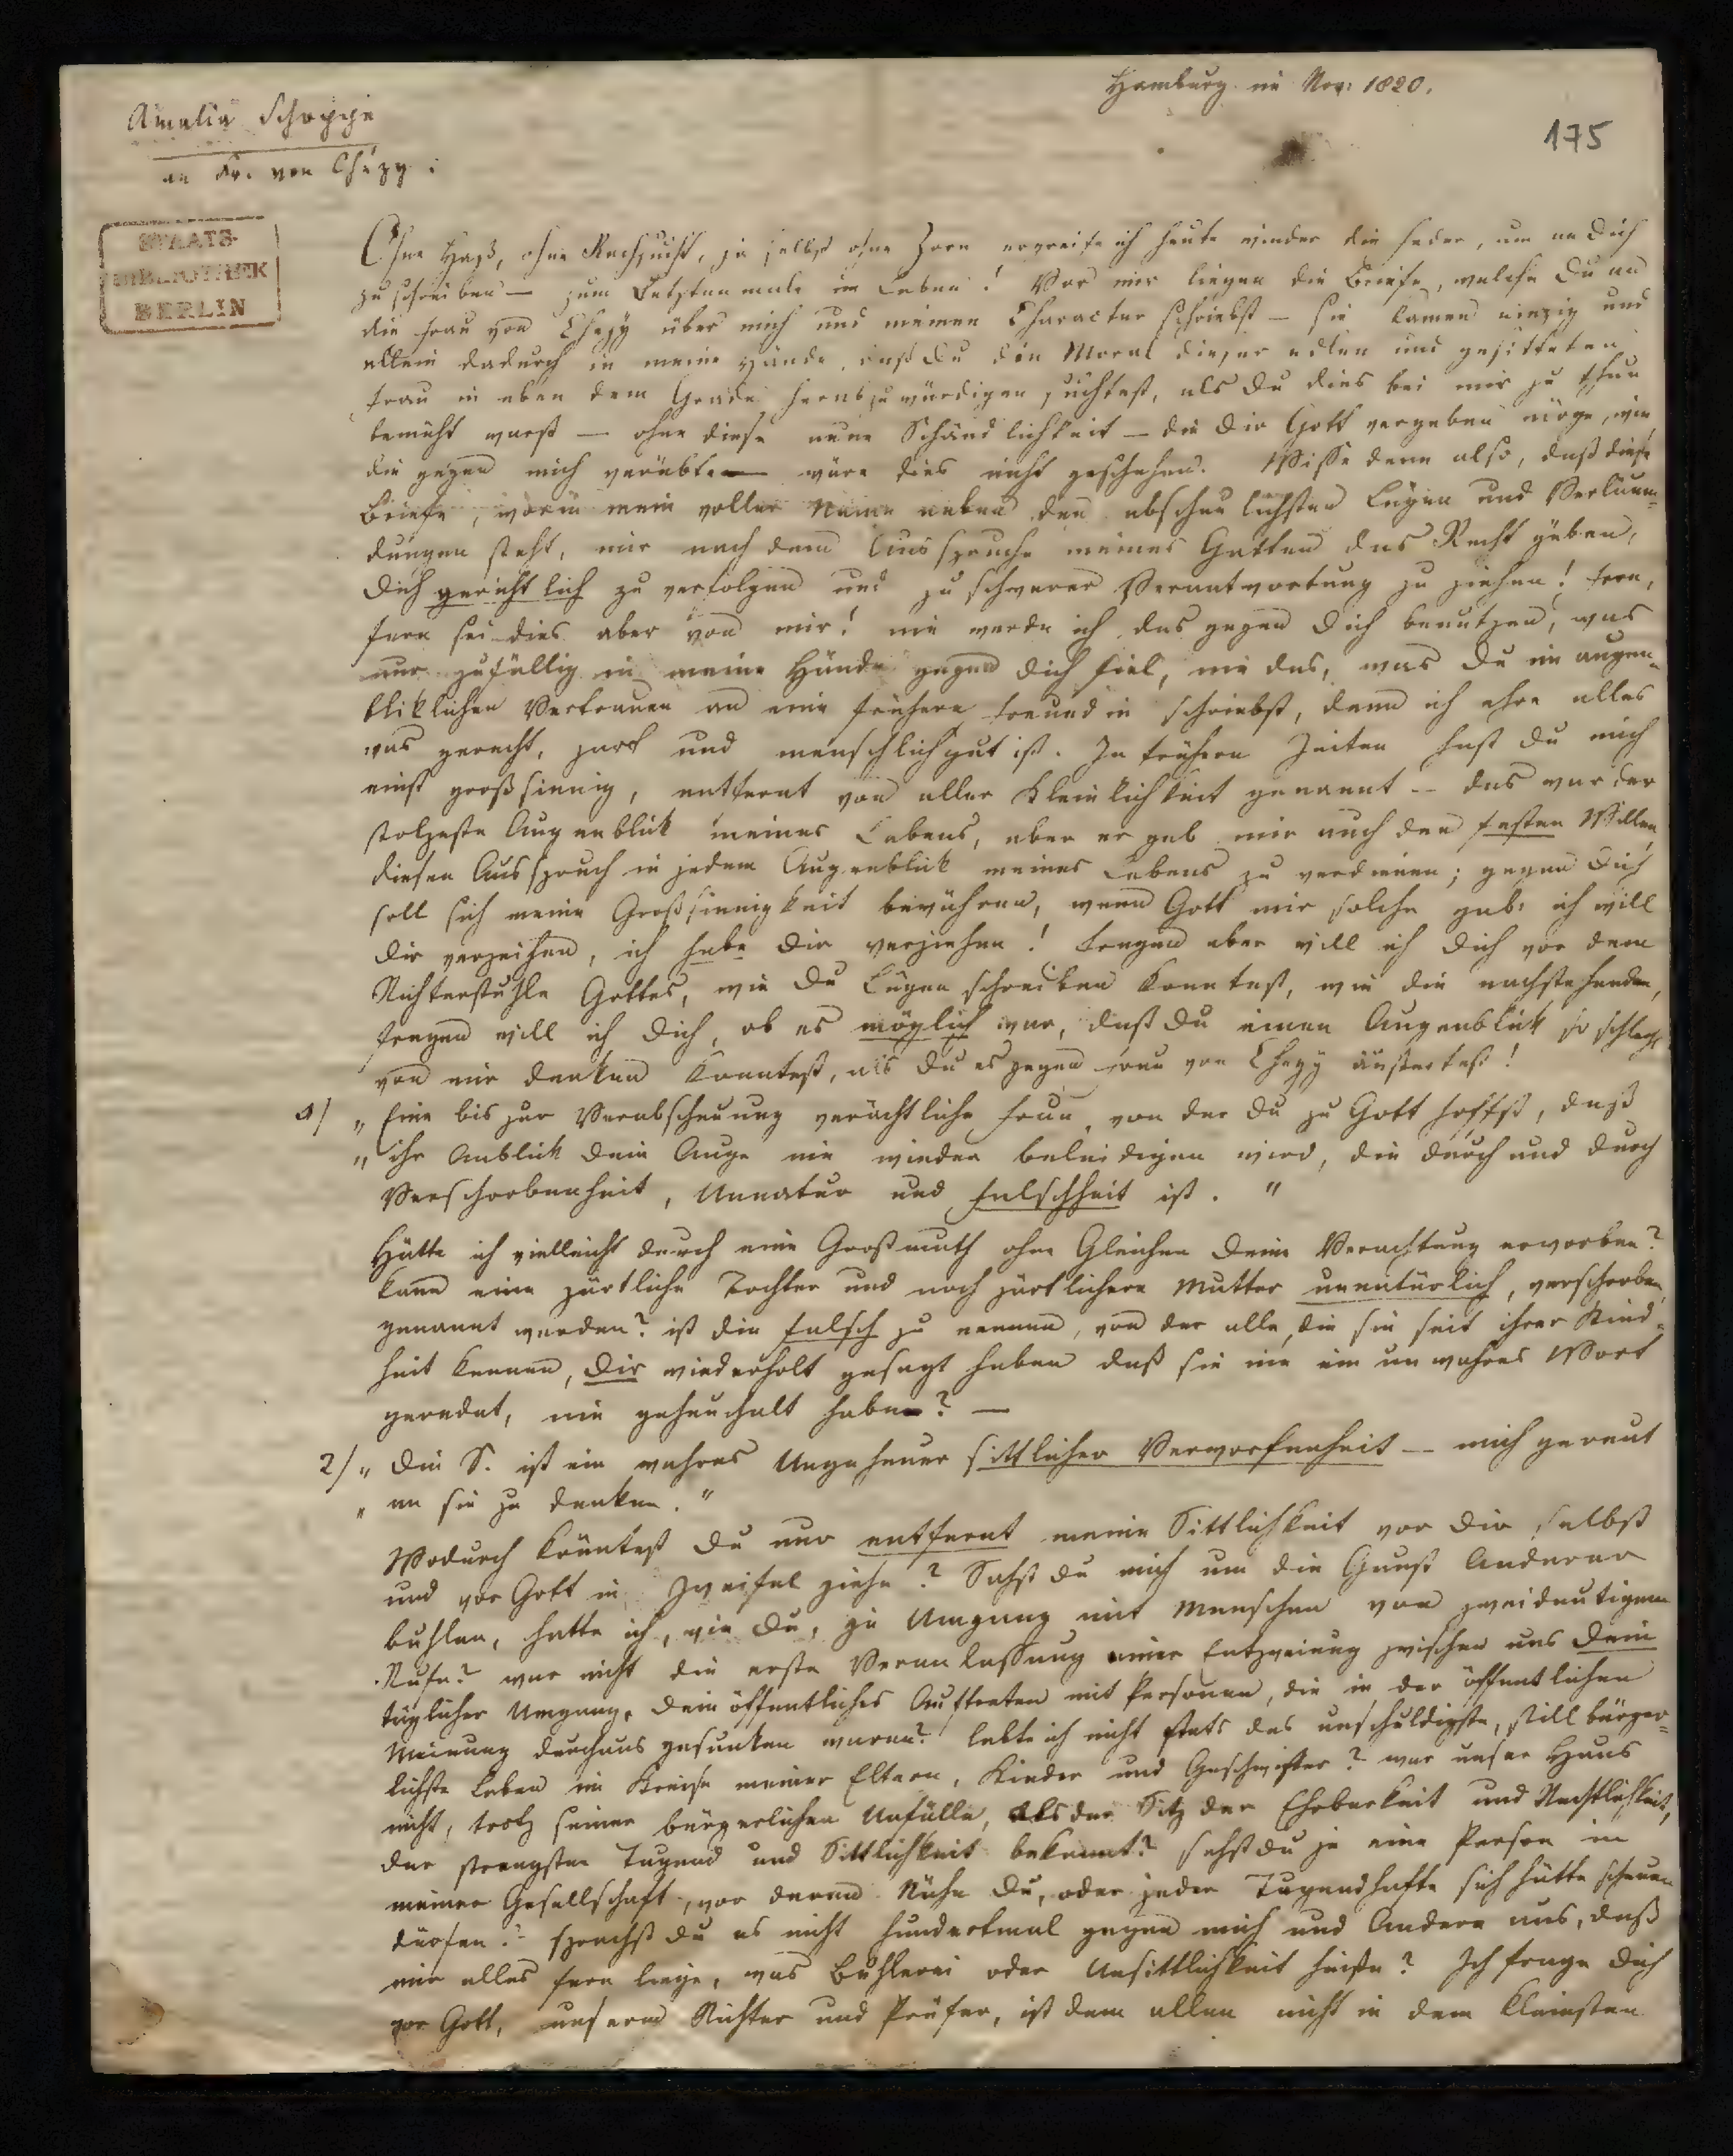 Hamburg im Nov: 1820.
Amalia Schoppe
175
an Fr. von Chézy:
STAATS-
BIBLIOTHEK
BERLIN
Ohne Haß, ohne Rachsucht, ja selbst ohne Zorn ergreife ich heute wieder die Feder, um an Dich
zu schreiben — zum Letztenmale im Leben! Vor mir liegen die Briefe, welche Du an
die Frau von Chezy über mich und meinen Character schriebst — sie kamen einzig und
allein dadurch in meine Hände, daß Du die Moral dieser edlen und gesitteten
Frau in eben dem Grade herabzuwürdigen suchtest, als Du dies bei mir zu thun
bemüht warst — ohne diese neue Schändlichkeit — die Dir Gott vergeben möge, wie
die gegen mich verübte — wäre dies nicht geschehen. Wisse denn also, daß diese
Briefe, worin mein voller Name neben den abscheulichsten Lügen und Verläum-
dungen steht, mir nach dem Ausspruche meines Gatten das Recht geben,
Dich gerichtlich zu verfolgen und zu schwerer Verantwortung zu ziehen! Fern,
fern sei dies aber von mir! nie werde ich das gegen Dich benutzen, was
nur zufällig in meine Hände gegen Dich fiel, nie das, was Du im augen-
bliklichen Vertrauen an eine frühere Freundin schriebst, denn ich ehre alles
was gerecht, zart und menschlichgut ist. In frühern Zeiten hast Du mich
einst großsinnig, entfernt von aller Kleinlichkeit genannt — das war der
stolzeste Augenblick meines Lebens, aber er gab mir auch den festen Willen,
diesen Ausspruch in jedem Augenblick meines Lebens zu verdienen; gegen Dich
soll sich meine Großsinnigkeit bewähren, wenn Gott mir solche gab: ich will
Dir verzeihen, ich habe Dir verziehen! Fragen aber will ich Dich vor dem
Richterstuhle Gottes, wie Du Lügen schreiben konntest, wie die nachstehenden,
fragen will ich Dich, ob es möglich war, daß Du einen Augenblick so schlecht
von mir denken konntest, als Du es gegen Frau von Chezy äußertest!
1/ „Eine bis zur Verabscheuung verächtliche Frau, von der Du zu Gott hoffst, daß
„ihr Anblick Dein Auge nie wieder beleidigen wird, die durch und durch
Verschrobenheit, Unnatur und Falschheit ist."
Hätte ich vielleicht durch eine Großmuth ohne Gleichen Deine Verachtung erworben?
kann eine zärtliche Tochter und noch zärtlichere Mutter unnatürlich, verschroben
genannt werden? ist die falsch zu nennen, von der alle, die sie seit ihrer Kind-
heit kennen, Dir wiederholt gesagt haben daß sie nie ein unwahres Wort
geredet, nie geheuchelt habe? —
2/ „Die S. ist ein wahres Ungeheuer sittlicher Verworfenheit — mich gereut
„an sie zu denken."
Wodurch könntest Du nur entfernt meine Sittlichkeit vor Dir selbst
und vor Gott in Zweifel ziehn? Sahst Du mich um die Gunst Anderer
buhlen, hatte ich, wie Du, je Umgang mit Menschen von zweideutigem
Rufe? war nicht die erste Veranlassung einer Entzweiung zwischen uns Dein
täglicher Umgang, Dein öffentliches Auftreten mit Personen, die in der öffentlichen
Meinung durchaus gesunken waren? lebte ich nicht stets das unschuldigste, still bürger-
lichste Leben im Kreise meiner Eltern, Kinder und Geschwister? war unser Haus
nicht, trotz seiner bürgerlichen Unfälle, als der Sitz der Ehrbarkeit und Rechtlichkeit,
der strengsten Tugend und Sittlichkeit bekannt? sahst Du je eine Person in
meiner Gesellschaft, vor deren Nähe Du, oder jeder Tugendhafte sich hätte scheuen
dürfen? sprachst Du es nicht hundertmal gegen mich und Andere aus, daß
mir alles fern liege, was Buhlerei oder Unsittlichkeit heiße? Ich frage Dich
vor Gott, unserm Richter und Prüfer, ist dem allen nicht in dem kleinsten